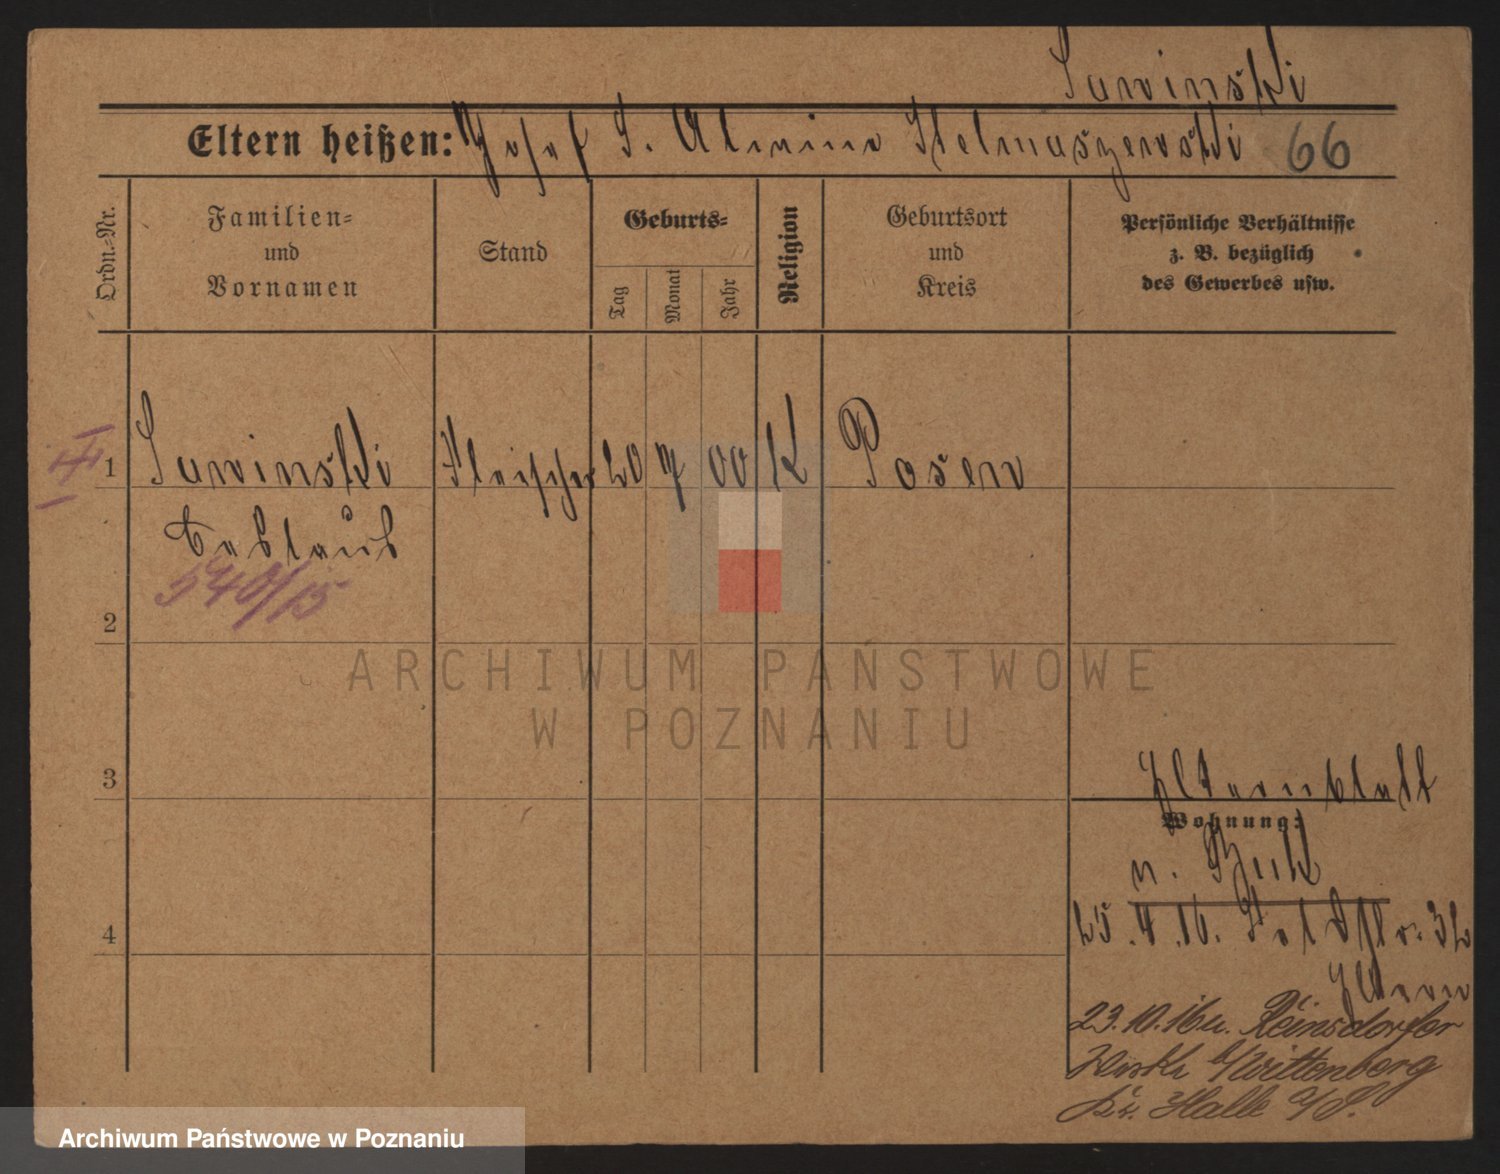 Suwinski
Eltern heißen: Josef S. Stelmaszewski 66
Ordn.-Nr.
Familien-
und
Vornamen
Stand
Geburts-
Tag
Monat
Jahr
Religion
Geburtsort
und
Kreis
Persönliche Verhältnisse
z. B. bezüglich
des Gewerbes usw.
1 Suwinski Fleischer 20 7 00 K Posen
540/15
2
3
Elternblatt
Wohnung:
n. Buk
4
25.4.16. 32
Eltern
23.10.16 Reinsdorfer
Werke b/Wittenberg
Halle a/S.
ARCHIWUM PAŃSTWOWE
W POZNANIU
Archiwum Państwowe w Poznaniu